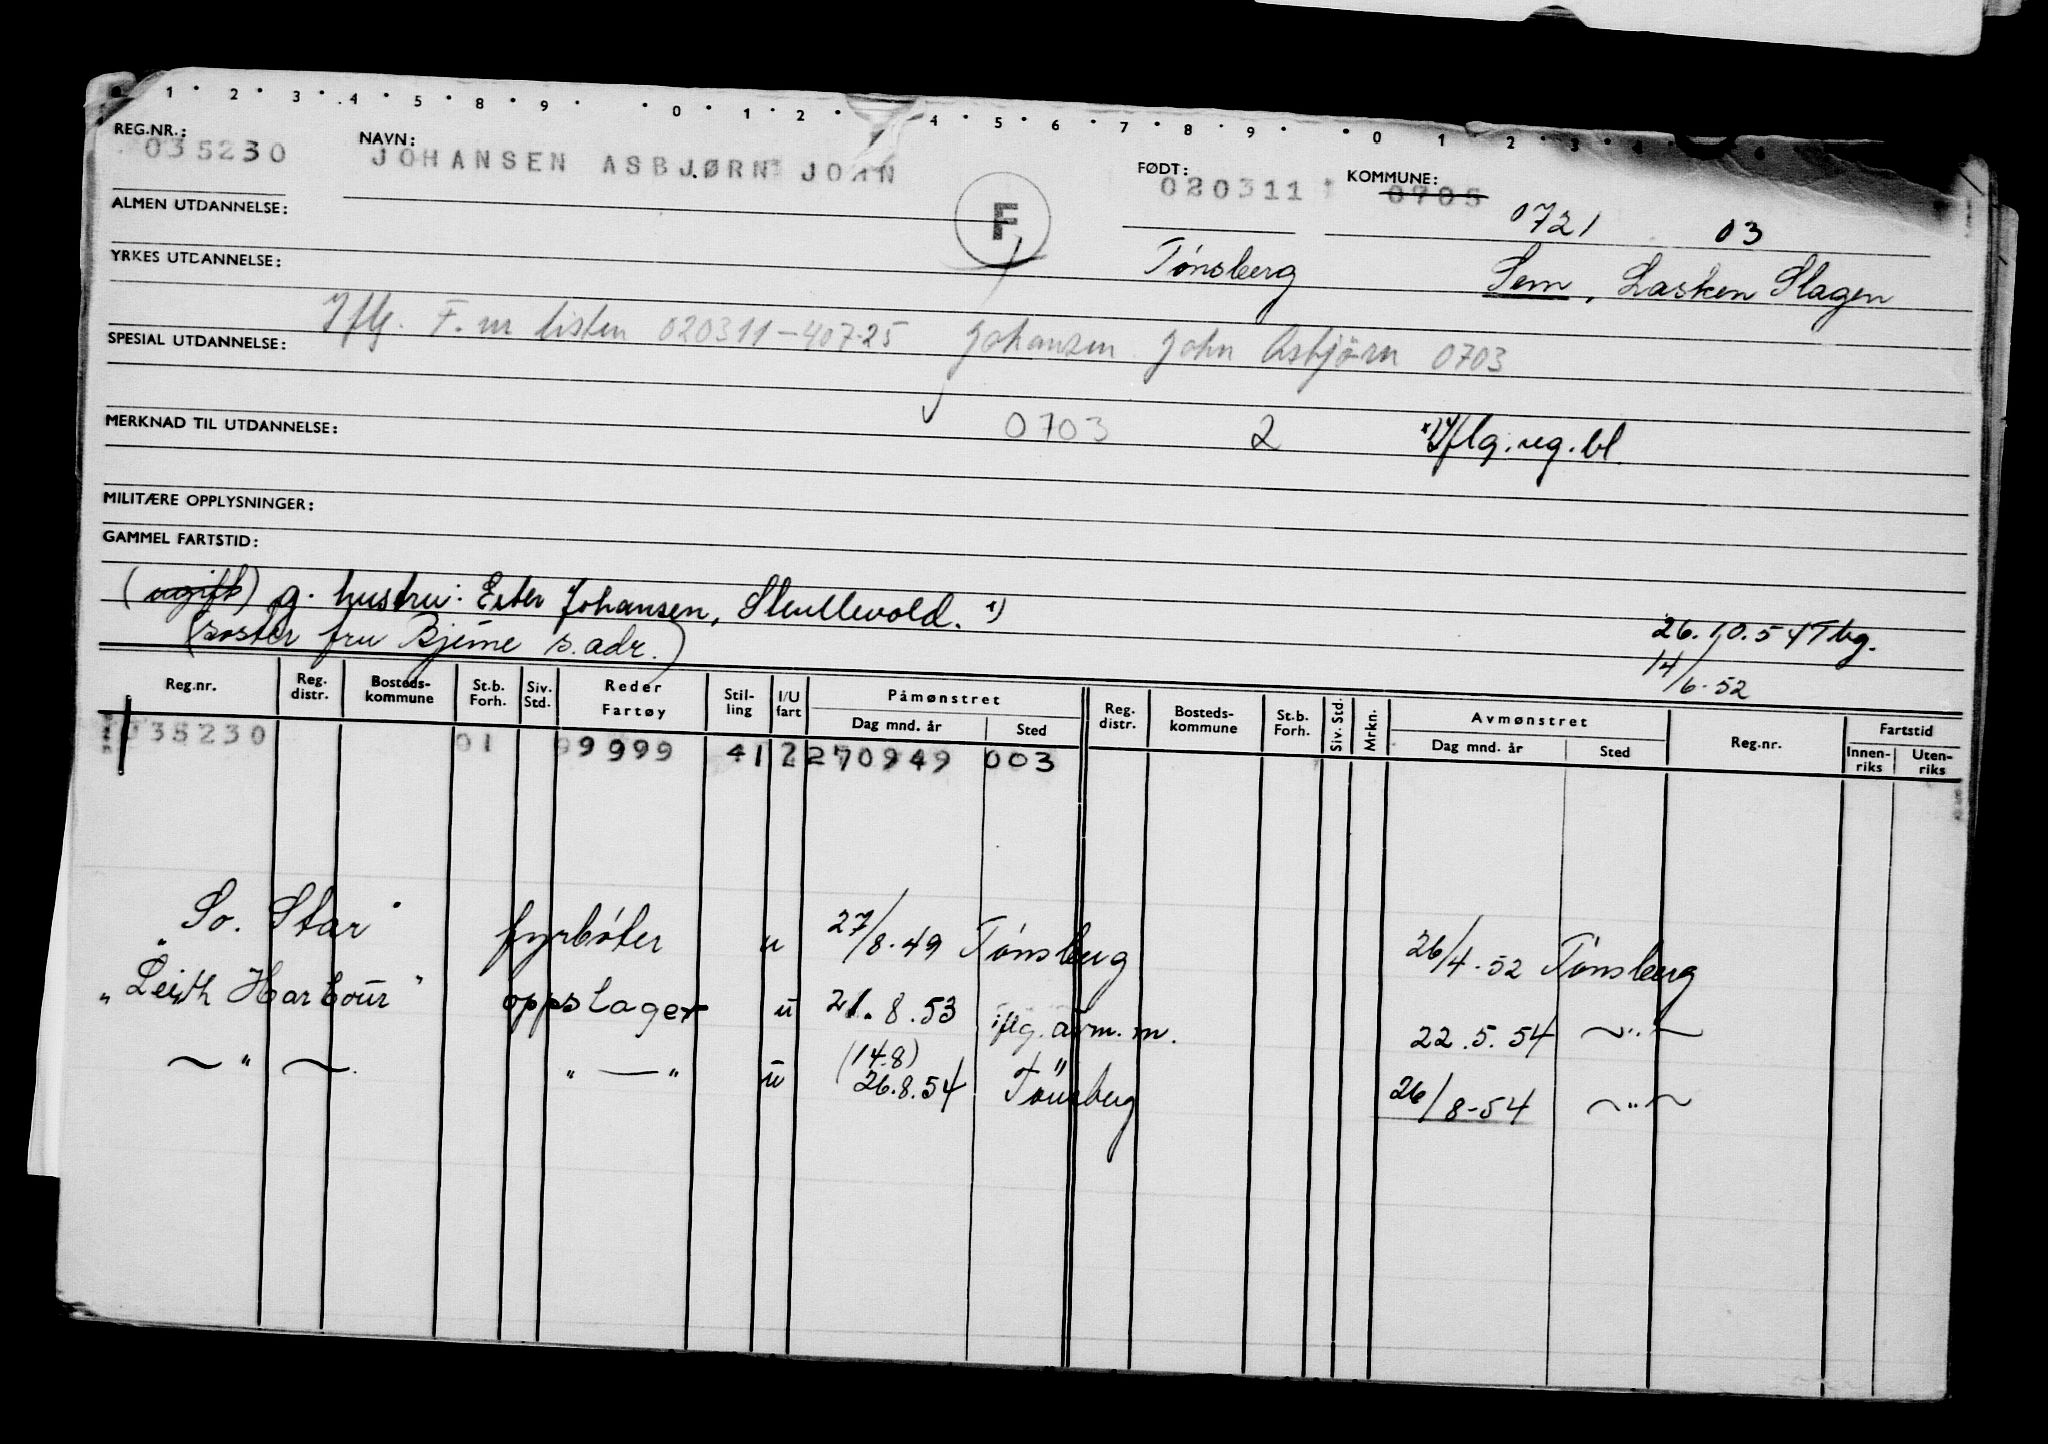 1 2 3 4 5 8 9 0 1 2 4 5 6 7 8 9 0 1 2 3 4 6
REG.NR.: NAVN: FØDT: KOMMUNE:
035230 JOHANSEN ASBJØRN JOHN 020311 0705
F 0721 03
ALMEN UTDANNELSE:
YRKES UTDANNELSE: Tønsberg Sem, Lasken Slagen
Iflg. F. nr listen 020311-407-25 Johansen John Asbjørn 0703
SPESIAL UTDANNELSE:
MERKNAD TIL UTDANNELSE: 0703 2 x) Iflg. reg. bl.
MILITÆRE OPPLYSNINGER:
GAMMEL FARTSTID:
(ugift) g. hustru: Ester Johansen, Skullevold. x)
(søster fru Bjerne s. adr.) 26.10.54 Tbg.
14/6-52
Reg.nr. Reg. distr. Bosteds-kommune St.b. Forh. Siv. Std. Reder Fartøy Stil-ling I/U fart Påmønstret Dag mnd. år Sted Reg. distr. Bosteds-kommune St.b. Forh. Siv. Std. Mrkn. Avmønstret Dag mnd. år Sted Reg.nr. Fartstid Innen-riks Uten-riks
035230 01 99999 41 2 270949 003
"So. Star" fyrbøter u 27/8-49 Tønsberg 26/4-52 Tønsberg
"Leith Harbour" oppslager u 21.8.53 iflg. avm. m. 22.5.54 ~"~
~"~ "—" u (14.8) 26.8.54 Tönsberg 26/8-54 ~"~